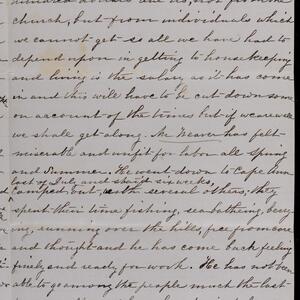 hundred dollars due us, not from the
church, but from individuals which
we cannot get & all we have had to
depend upon in getting to housekeeping
and living is the salary as it has come
in and this will have to be cut down some
on account of the times but if we are well
we shall get along. Mr Weaver has felt
miserable and unfit for labor all Spring
and Summer. He went down to Cape Ann
last of July and spent six weeks,
camped, but with several others, they
spent their time fishing, seabathing,
running over the hills, free from care
and thought and he has come back feeling
finely and ready for work. He has not been
able to go among the people much the last